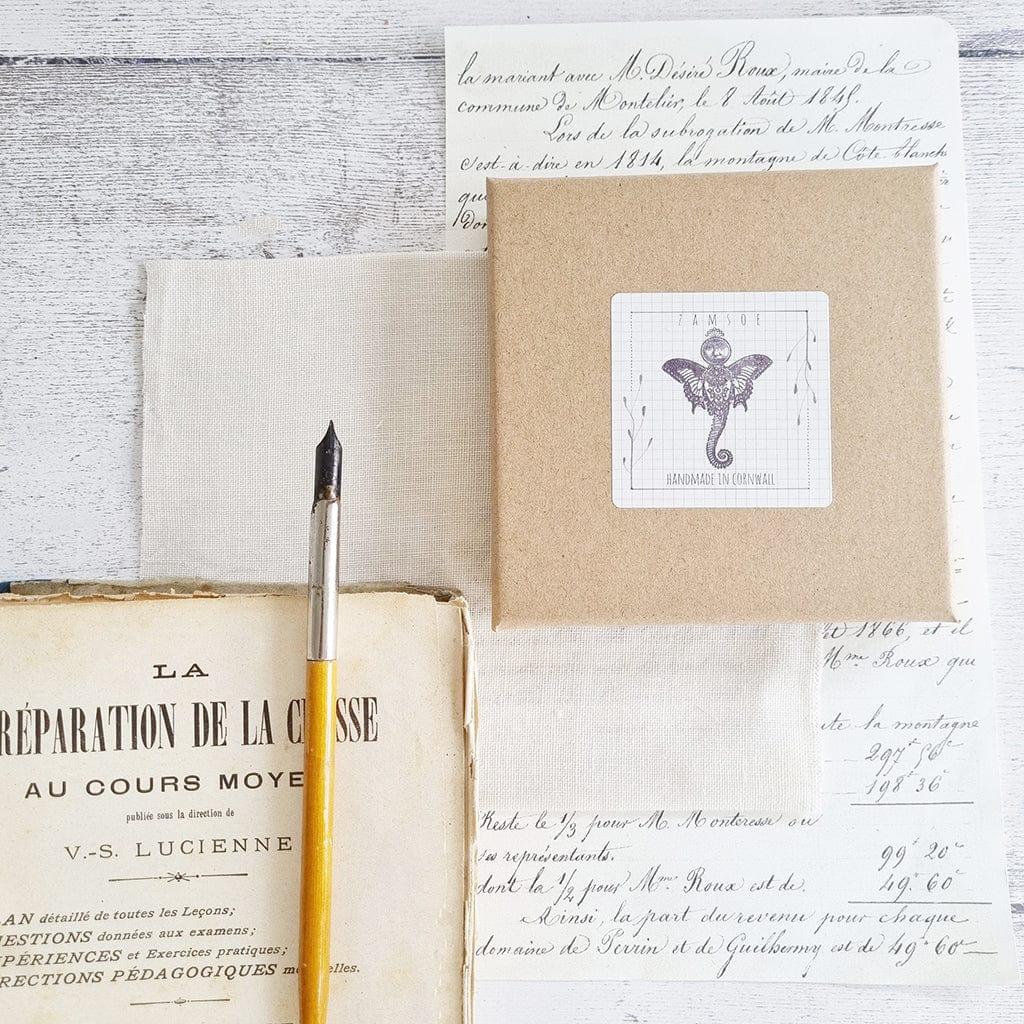 la mariant avec M. Désiré Roux, maire de la
commune de Montelier, le 8 Août 1845.
Lors de la subrogation de M. Montresse
c'est-à-dire en 1814, la montagne de Côte blanche
qu
don
ZAMSOE
HANDMADE IN CORNWALL
et 1866, et il
Mme Roux qui
te la montagne
297f 56c
198f 36c
Reste le 1/3 pour M. Monteresse ou
ses représentants.
99f 20c
dont la 1/2 pour Mme Roux est de.
49f 60c
Ainsi, la part du revenu pour chaque
domaine de Perrin et de Guilhermy est de 49f 60c
LA
RÉPARATION DE LA C SSE
AU COURS MOYE
publiée sous la direction de
V.-S. LUCIENNE
LAN détaillé de toutes les Leçons;
ESTIONS données aux examens;
PÉRIENCES et Exercices pratiques;
RECTIONS PÉDAGOGIQUES m elles.